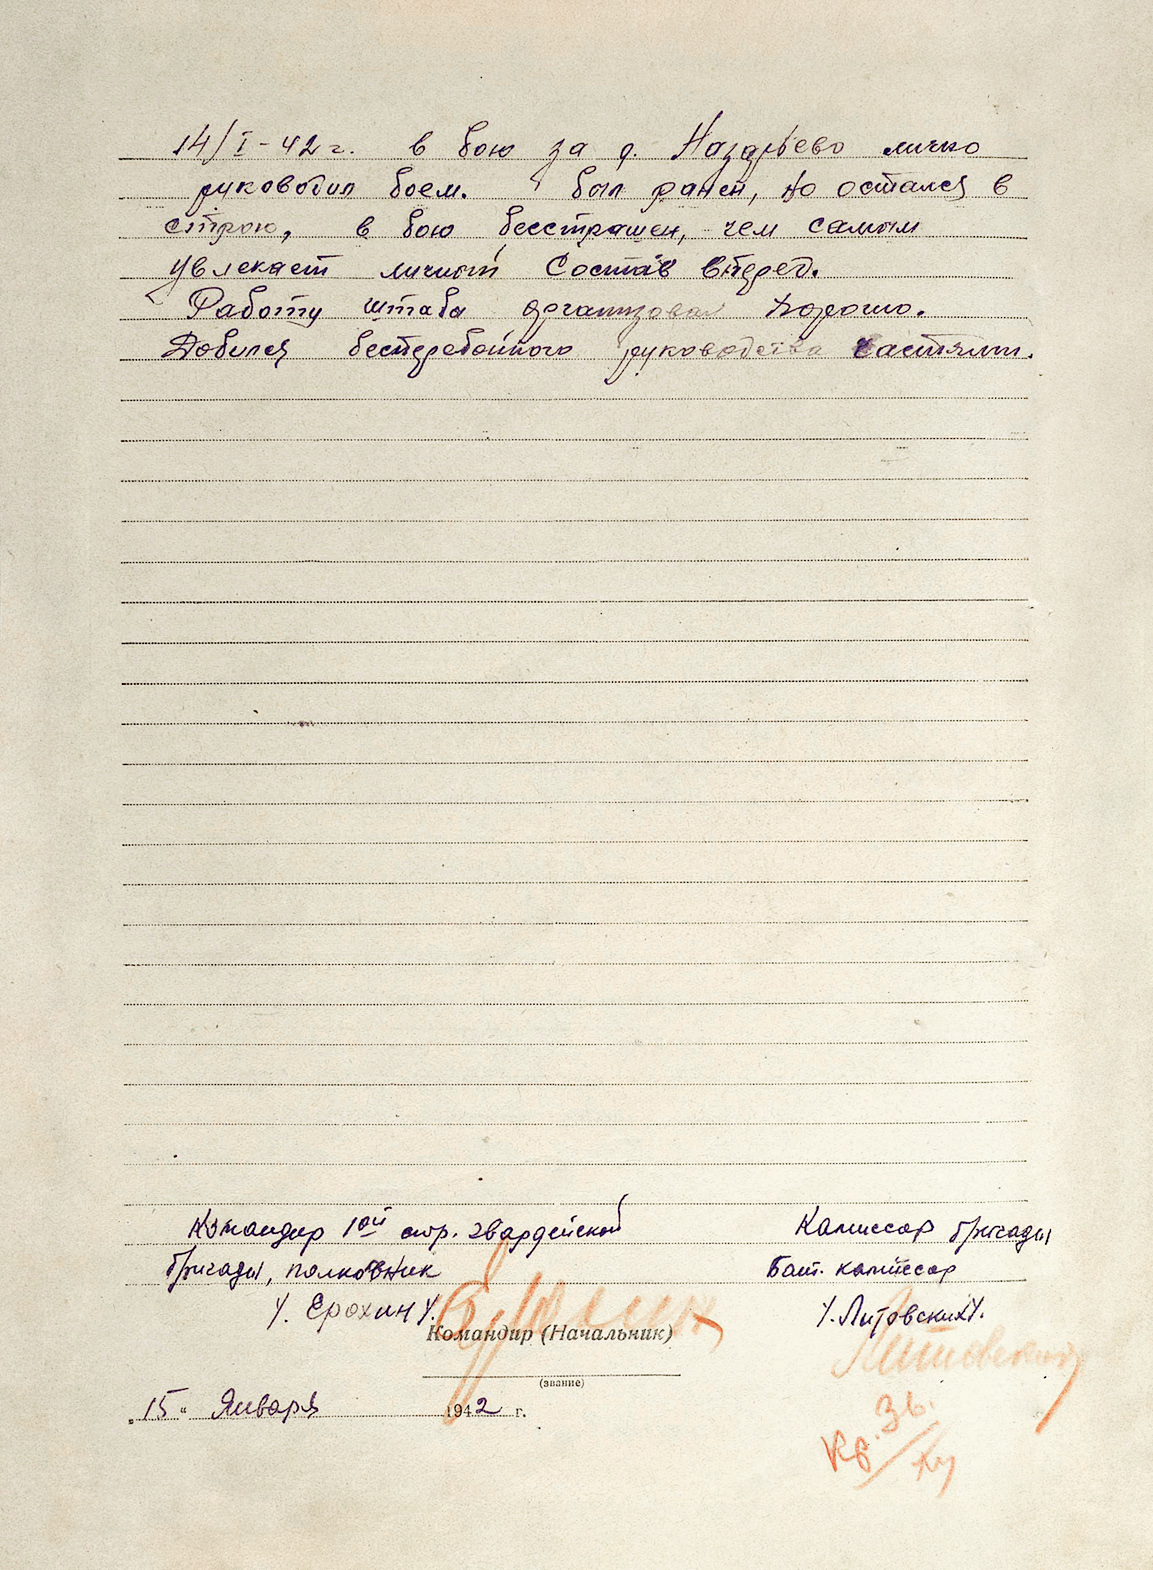 14/I-42 г. в бою за д. Назарьево лично
руководил боем. был ранен, но остался в
строю, в бою бесстрашен, чем самым
увлекает личный состав вперед.
Работу штаба организовал хорошо.
Добился бесперебойного руководства частями.
Командир 1ой стр. гвардейской
бригады, полковник
/. Ерохин /.
Комиссар бригады
Бат. комиссар
/. Литовских /.
Командир (Начальник)
(звание)
„15“ Января 1942 г.
Кр. Зв.